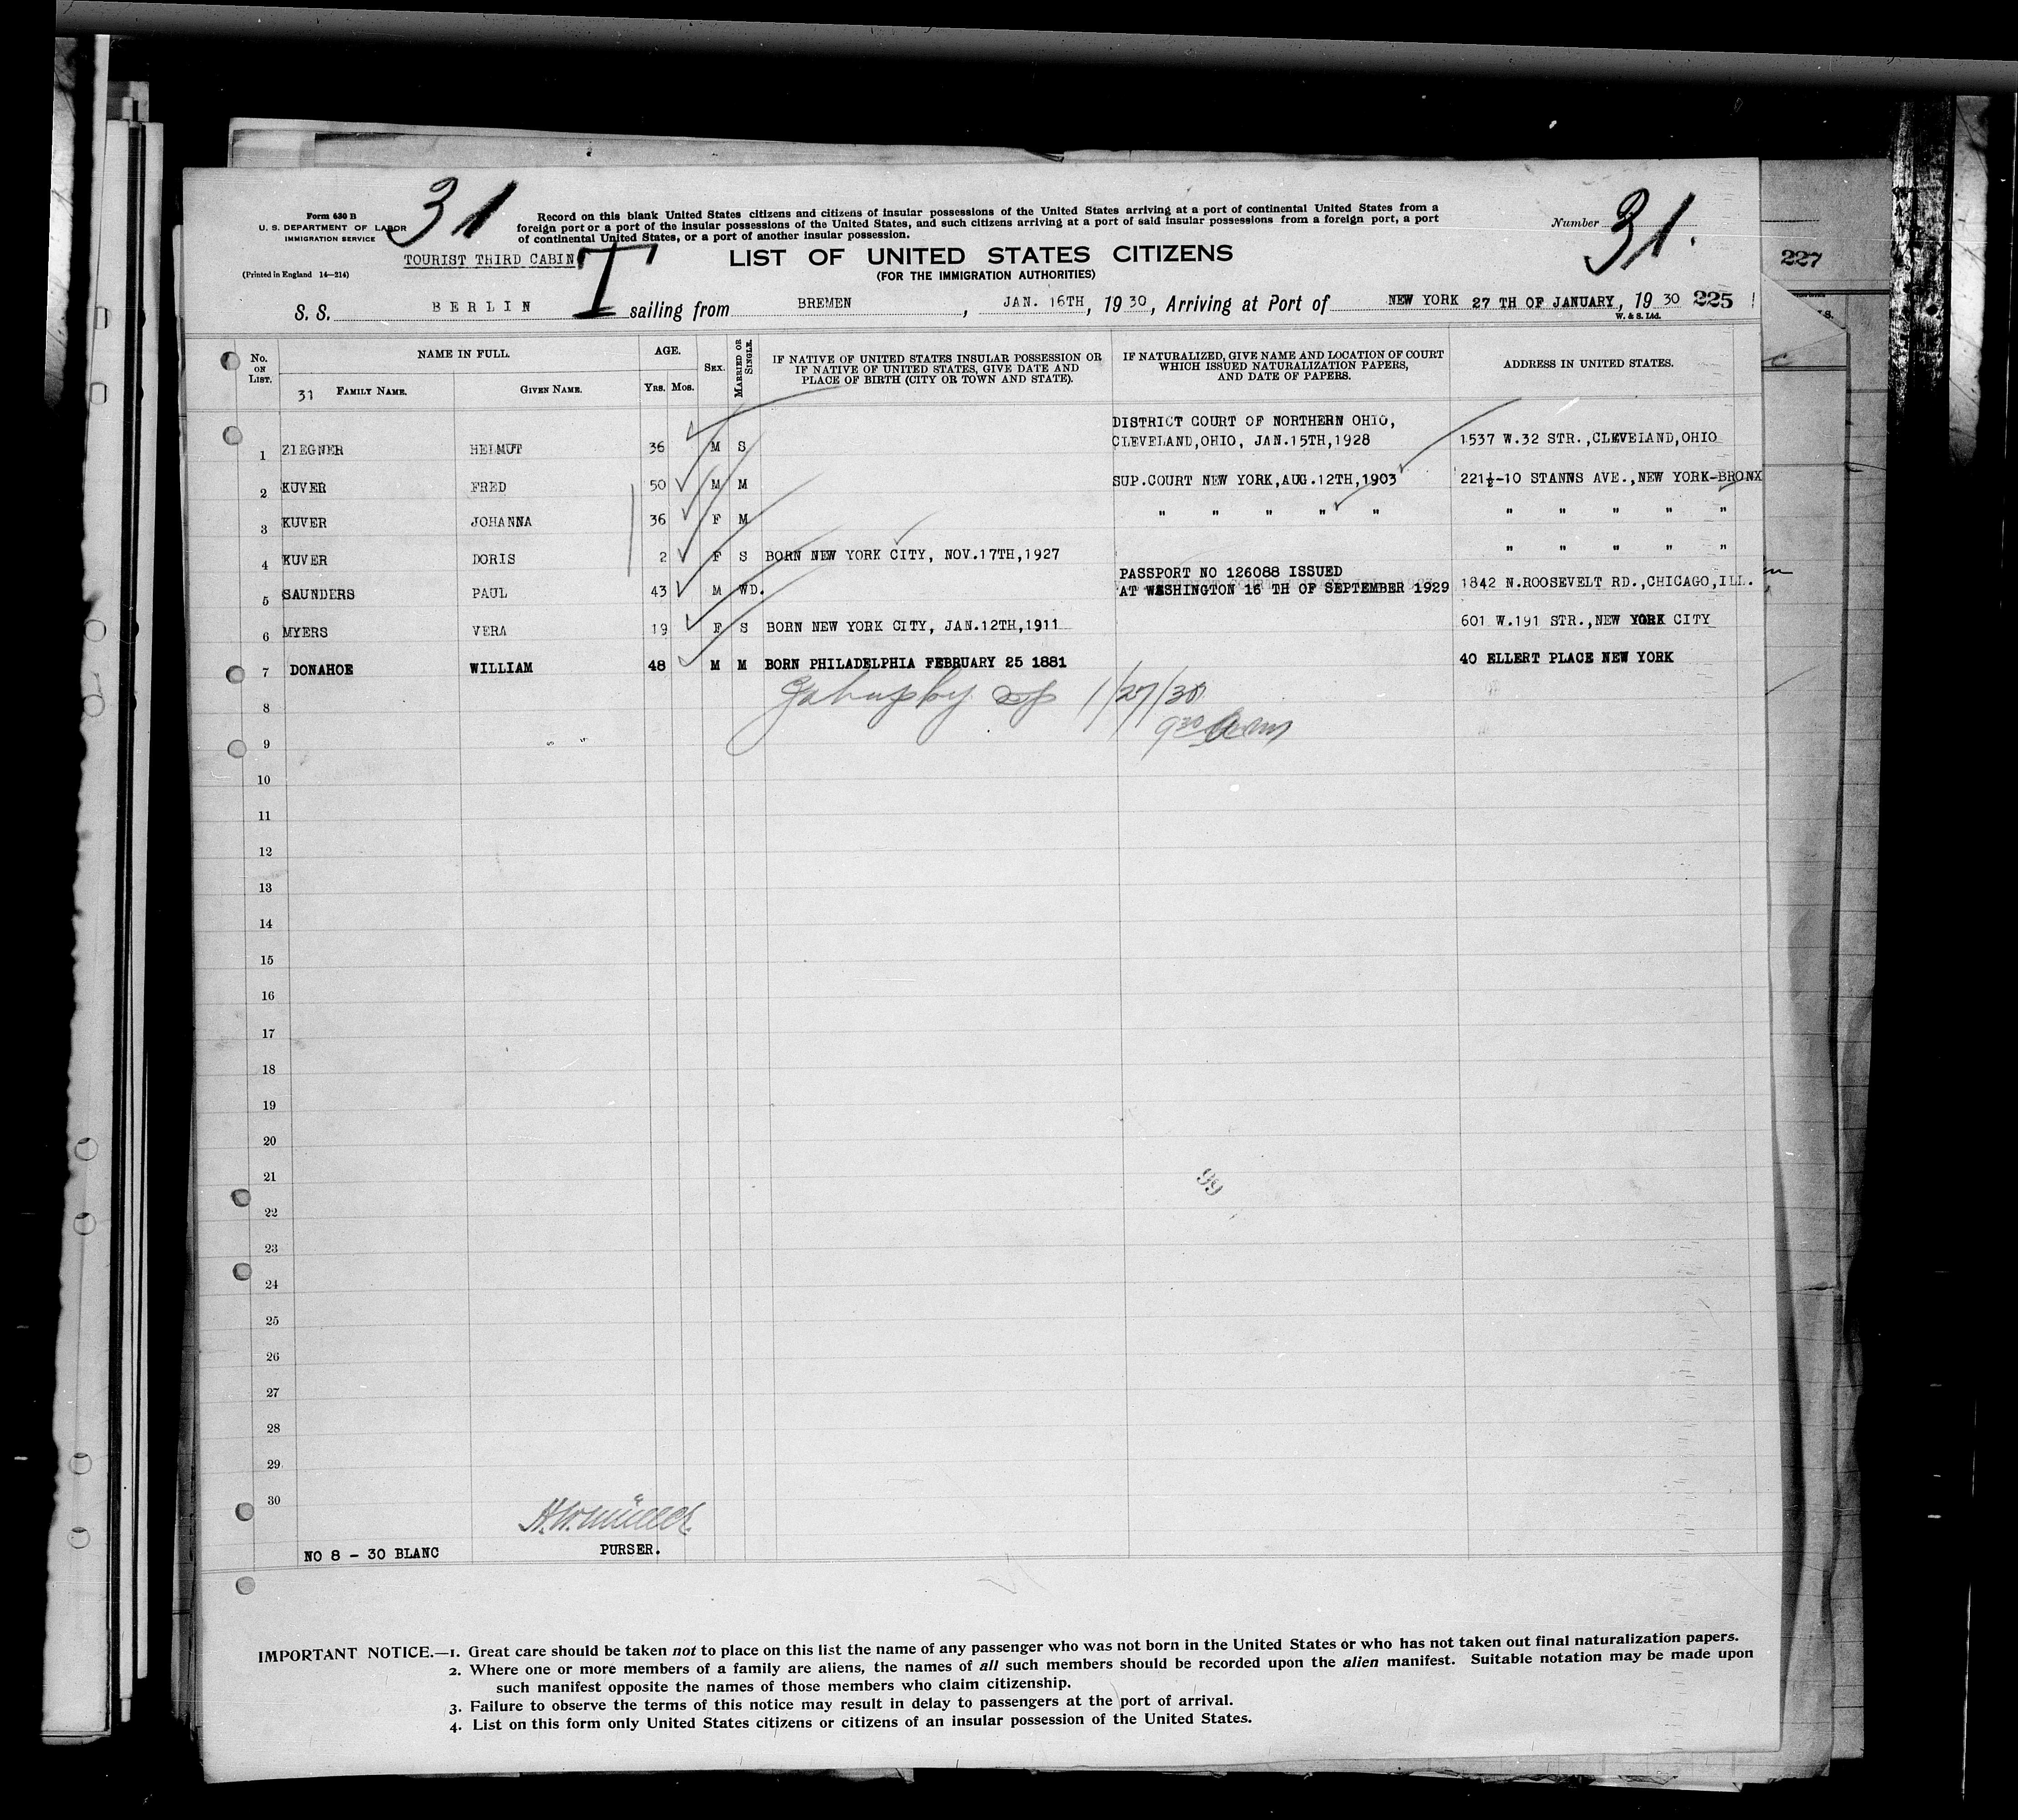 Form 630 B
U. S. DEPARTMENT OF LABOR
IMMIGRATION SERVICE
(Printed in England 14—214)
31
TOURIST THIRD CABIN
T
Record on this blank United States citizens and citizens of insular possessions of the United States arriving at a port of continental United States from a
foreign port or a port of the insular possessions of the United States, and such citizens arriving at a port of said insular possessions from a foreign port, a port
of continental United States, or a port of another insular possession.
LIST OF UNITED STATES CITIZENS
(FOR THE IMMIGRATION AUTHORITIES)
Number 31.
227
S. S. BERLIN sailing from BREMEN, JAN. 16TH, 1930, Arriving at Port of NEW YORK 27 TH OF JANUARY, 1930 225
W. & S. Ltd.
No. ON LIST.
NAME IN FULL.
31 FAMILY NAME.
GIVEN NAME.
AGE.
Yrs. Mos.
SEX.
MARRIED OR SINGLE.
IF NATIVE OF UNITED STATES INSULAR POSSESSION OR
IF NATIVE OF UNITED STATES, GIVE DATE AND
PLACE OF BIRTH (CITY OR TOWN AND STATE).
IF NATURALIZED, GIVE NAME AND LOCATION OF COURT
WHICH ISSUED NATURALIZATION PAPERS,
AND DATE OF PAPERS.
ADDRESS IN UNITED STATES.
DISTRICT COURT OF NORTHERN OHIO,
1 ZIEGNER HELMUT 36 M S CLEVELAND,OHIO, JAN.15TH,1928 1537 W.32 STR.,CLEVELAND,OHIO
2 KUVER FRED 50 M M SUP.COURT NEW YORK,AUG.12TH,1903 221½-10 STANNS AVE.,NEW YORK-BRONX
3 KUVER JOHANNA 36 F M " " " " " " " " " "
4 KUVER DORIS 2 F S BORN NEW YORK CITY, NOV.17TH,1927 " " " " "
PASSPORT NO 126088 ISSUED
5 SAUNDERS PAUL 43 M WD. AT WASHINGTON 16 TH OF SEPTEMBER 1929 1842 N.ROOSEVELT RD.,CHICAGO,ILL.
6 MYERS VERA 19 F S BORN NEW YORK CITY, JAN.12TH,1911 601 W.191 STR.,NEW YORK CITY
7 DONAHOE WILLIAM 48 M M BORN PHILADELPHIA FEBRUARY 25 1881 40 ELLERT PLACE NEW YORK
8 1/27/30
9 9 30 am
10
11
12
13
14
15
16
17
18
19
20
21 99
22
23
24
25
26
27
28
29
30
NO 8 - 30 BLANC
PURSER.
IMPORTANT NOTICE.—1. Great care should be taken not to place on this list the name of any passenger who was not born in the United States or who has not taken out final naturalization papers.
2. Where one or more members of a family are aliens, the names of all such members should be recorded upon the alien manifest. Suitable notation may be made upon
such manifest opposite the names of those members who claim citizenship.
3. Failure to observe the terms of this notice may result in delay to passengers at the port of arrival.
4. List on this form only United States citizens or citizens of an insular possession of the United States.